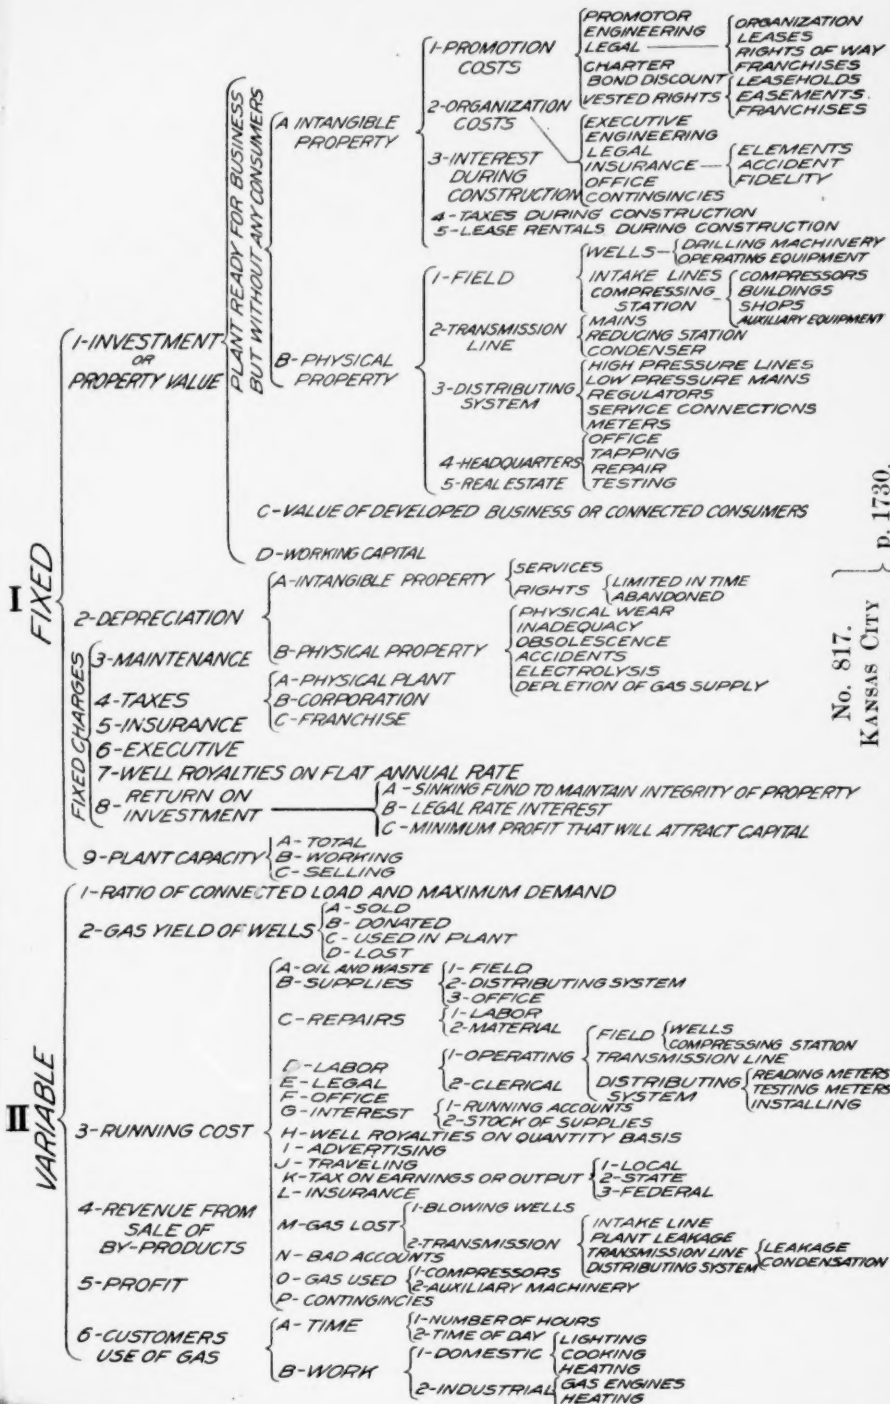 I FIXED
1-INVESTMENT
OR
PROPERTY VALUE
PLANT READY FOR BUSINESS
BUT WITHOUT ANY CONSUMERS
A INTANGIBLE
PROPERTY
1-PROMOTION
COSTS
PROMOTOR
ENGINEERING
LEGAL
CHARTER
BOND DISCOUNT
VESTED RIGHTS
ORGANIZATION
LEASES
RIGHTS OF WAY
FRANCHISES
LEASEHOLDS
EASEMENTS
FRANCHISES
2-ORGANIZATION
COSTS
EXECUTIVE
ENGINEERING
LEGAL
INSURANCE
OFFICE
CONTINGICIES
ELEMENTS
ACCIDENT
FIDELITY
3-INTEREST
DURING
CONSTRUCTION
4-TAXES DURING CONSTRUCTION
5-LEASE RENTALS DURING CONSTRUCTION
B-PHYSICAL
PROPERTY
1-FIELD
WELLS
DRILLING MACHINERY
OPERATING EQUIPMENT
INTAKE LINES
COMPRESSING
STATION
COMPRESSORS
BUILDINGS
SHOPS
AUXILIARY EQUIPMENT
2-TRANSMISSION
LINE
MAINS
REDUCING STATION
CONDENSER
3-DISTRIBUTING
SYSTEM
HIGH PRESSURE LINES
LOW PRESSURE MAINS
REGULATORS
SERVICE CONNECTIONS
METERS
4-HEADQUARTERS
OFFICE
TAPPING
REPAIR
TESTING
5-REAL ESTATE
C-VALUE OF DEVELOPED BUSINESS OR CONNECTED CONSUMERS
D-WORKING CAPITAL
2-DEPRECIATION
A-INTANGIBLE PROPERTY
SERVICES
RIGHTS
LIMITED IN TIME
ABANDONED
B-PHYSICAL PROPERTY
PHYSICAL WEAR
INADEQUACY
OBSOLESCENCE
ACCIDENTS
ELECTROLYSIS
DEPLETION OF GAS SUPPLY
FIXED CHARGES
3-MAINTENANCE
4-TAXES
A-PHYSICAL PLANT
B-CORPORATION
C-FRANCHISE
5-INSURANCE
6-EXECUTIVE
7-WELL ROYALTIES ON FLAT ANNUAL RATE
8-RETURN ON
INVESTMENT
A-SINKING FUND TO MAINTAIN INTEGRITY OF PROPERTY
B-LEGAL RATE INTEREST
C-MINIMUM PROFIT THAT WILL ATTRACT CAPITAL
9-PLANT CAPACITY
A-TOTAL
B-WORKING
C-SELLING
II VARIABLE
1-RATIO OF CONNECTED LOAD AND MAXIMUM DEMAND
2-GAS YIELD OF WELLS
A-SOLD
B-DONATED
C-USED IN PLANT
D-LOST
3-RUNNING COST
A-OIL AND WASTE
B-SUPPLIES
1-FIELD
2-DISTRIBUTING SYSTEM
3-OFFICE
C-REPAIRS
1-LABOR
2-MATERIAL
D-LABOR
1-OPERATING
FIELD
WELLS
COMPRESSING STATION
TRANSMISSION LINE
DISTRIBUTING
SYSTEM
READING METERS
TESTING METERS
INSTALLING
2-CLERICAL
E-LEGAL
F-OFFICE
G-INTEREST
1-RUNNING ACCOUNTS
2-STOCK OF SUPPLIES
H-WELL ROYALTIES ON QUANTITY BASIS
I-ADVERTISING
J-TRAVELING
K-TAX ON EARNINGS OR OUTPUT
1-LOCAL
2-STATE
3-FEDERAL
L-INSURANCE
M-GAS LOST
1-BLOWING WELLS
2-TRANSMISSION
INTAKE LINE
PLANT LEAKAGE
TRANSMISSION LINE
DISTRIBUTING SYSTEM
LEAKAGE
CONDENSATION
N-BAD ACCOUNTS
O-GAS USED
1-COMPRESSORS
2-AUXILIARY MACHINERY
P-CONTINGICIES
4-REVENUE FROM
SALE OF
BY-PRODUCTS
5-PROFIT
6-CUSTOMERS
USE OF GAS
A-TIME
1-NUMBER OF HOURS
2-TIME OF DAY
B-WORK
1-DOMESTIC
LIGHTING
COOKING
HEATING
2-INDUSTRIAL
GAS ENGINES
HEATING
No. 817.
KANSAS CITY
p. 1730.